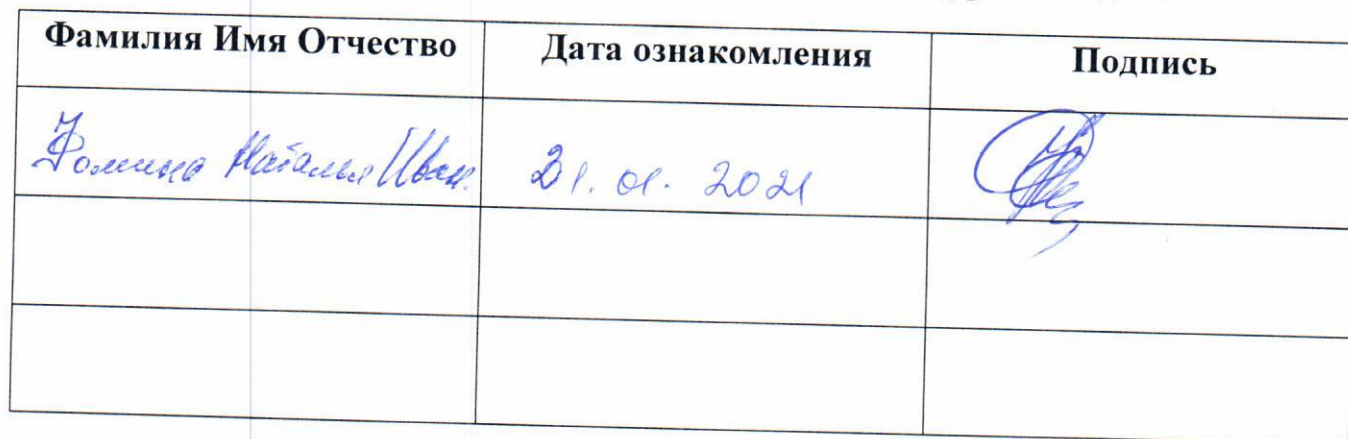 Фамилия Имя Отчество Дата ознакомления Подпись
Фомина Наталья Иван. 21.01.2021